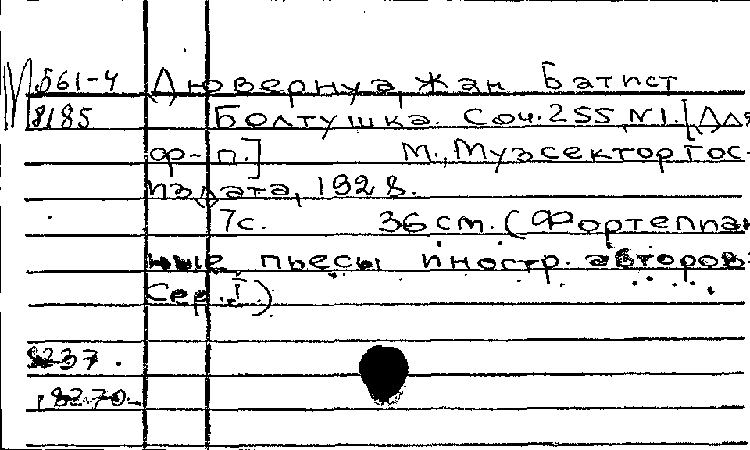 М 561-4 Дювернуа, Жан Батист
8185 Болтушка. Соч. 255, №1. [Для
ф-п.] М., Музсектор Гос-
издата, 1928.
7с. 36 см. (Фортепиан
ные пьесы иностр. авторов.
Сер. I.)
8237.
8270.